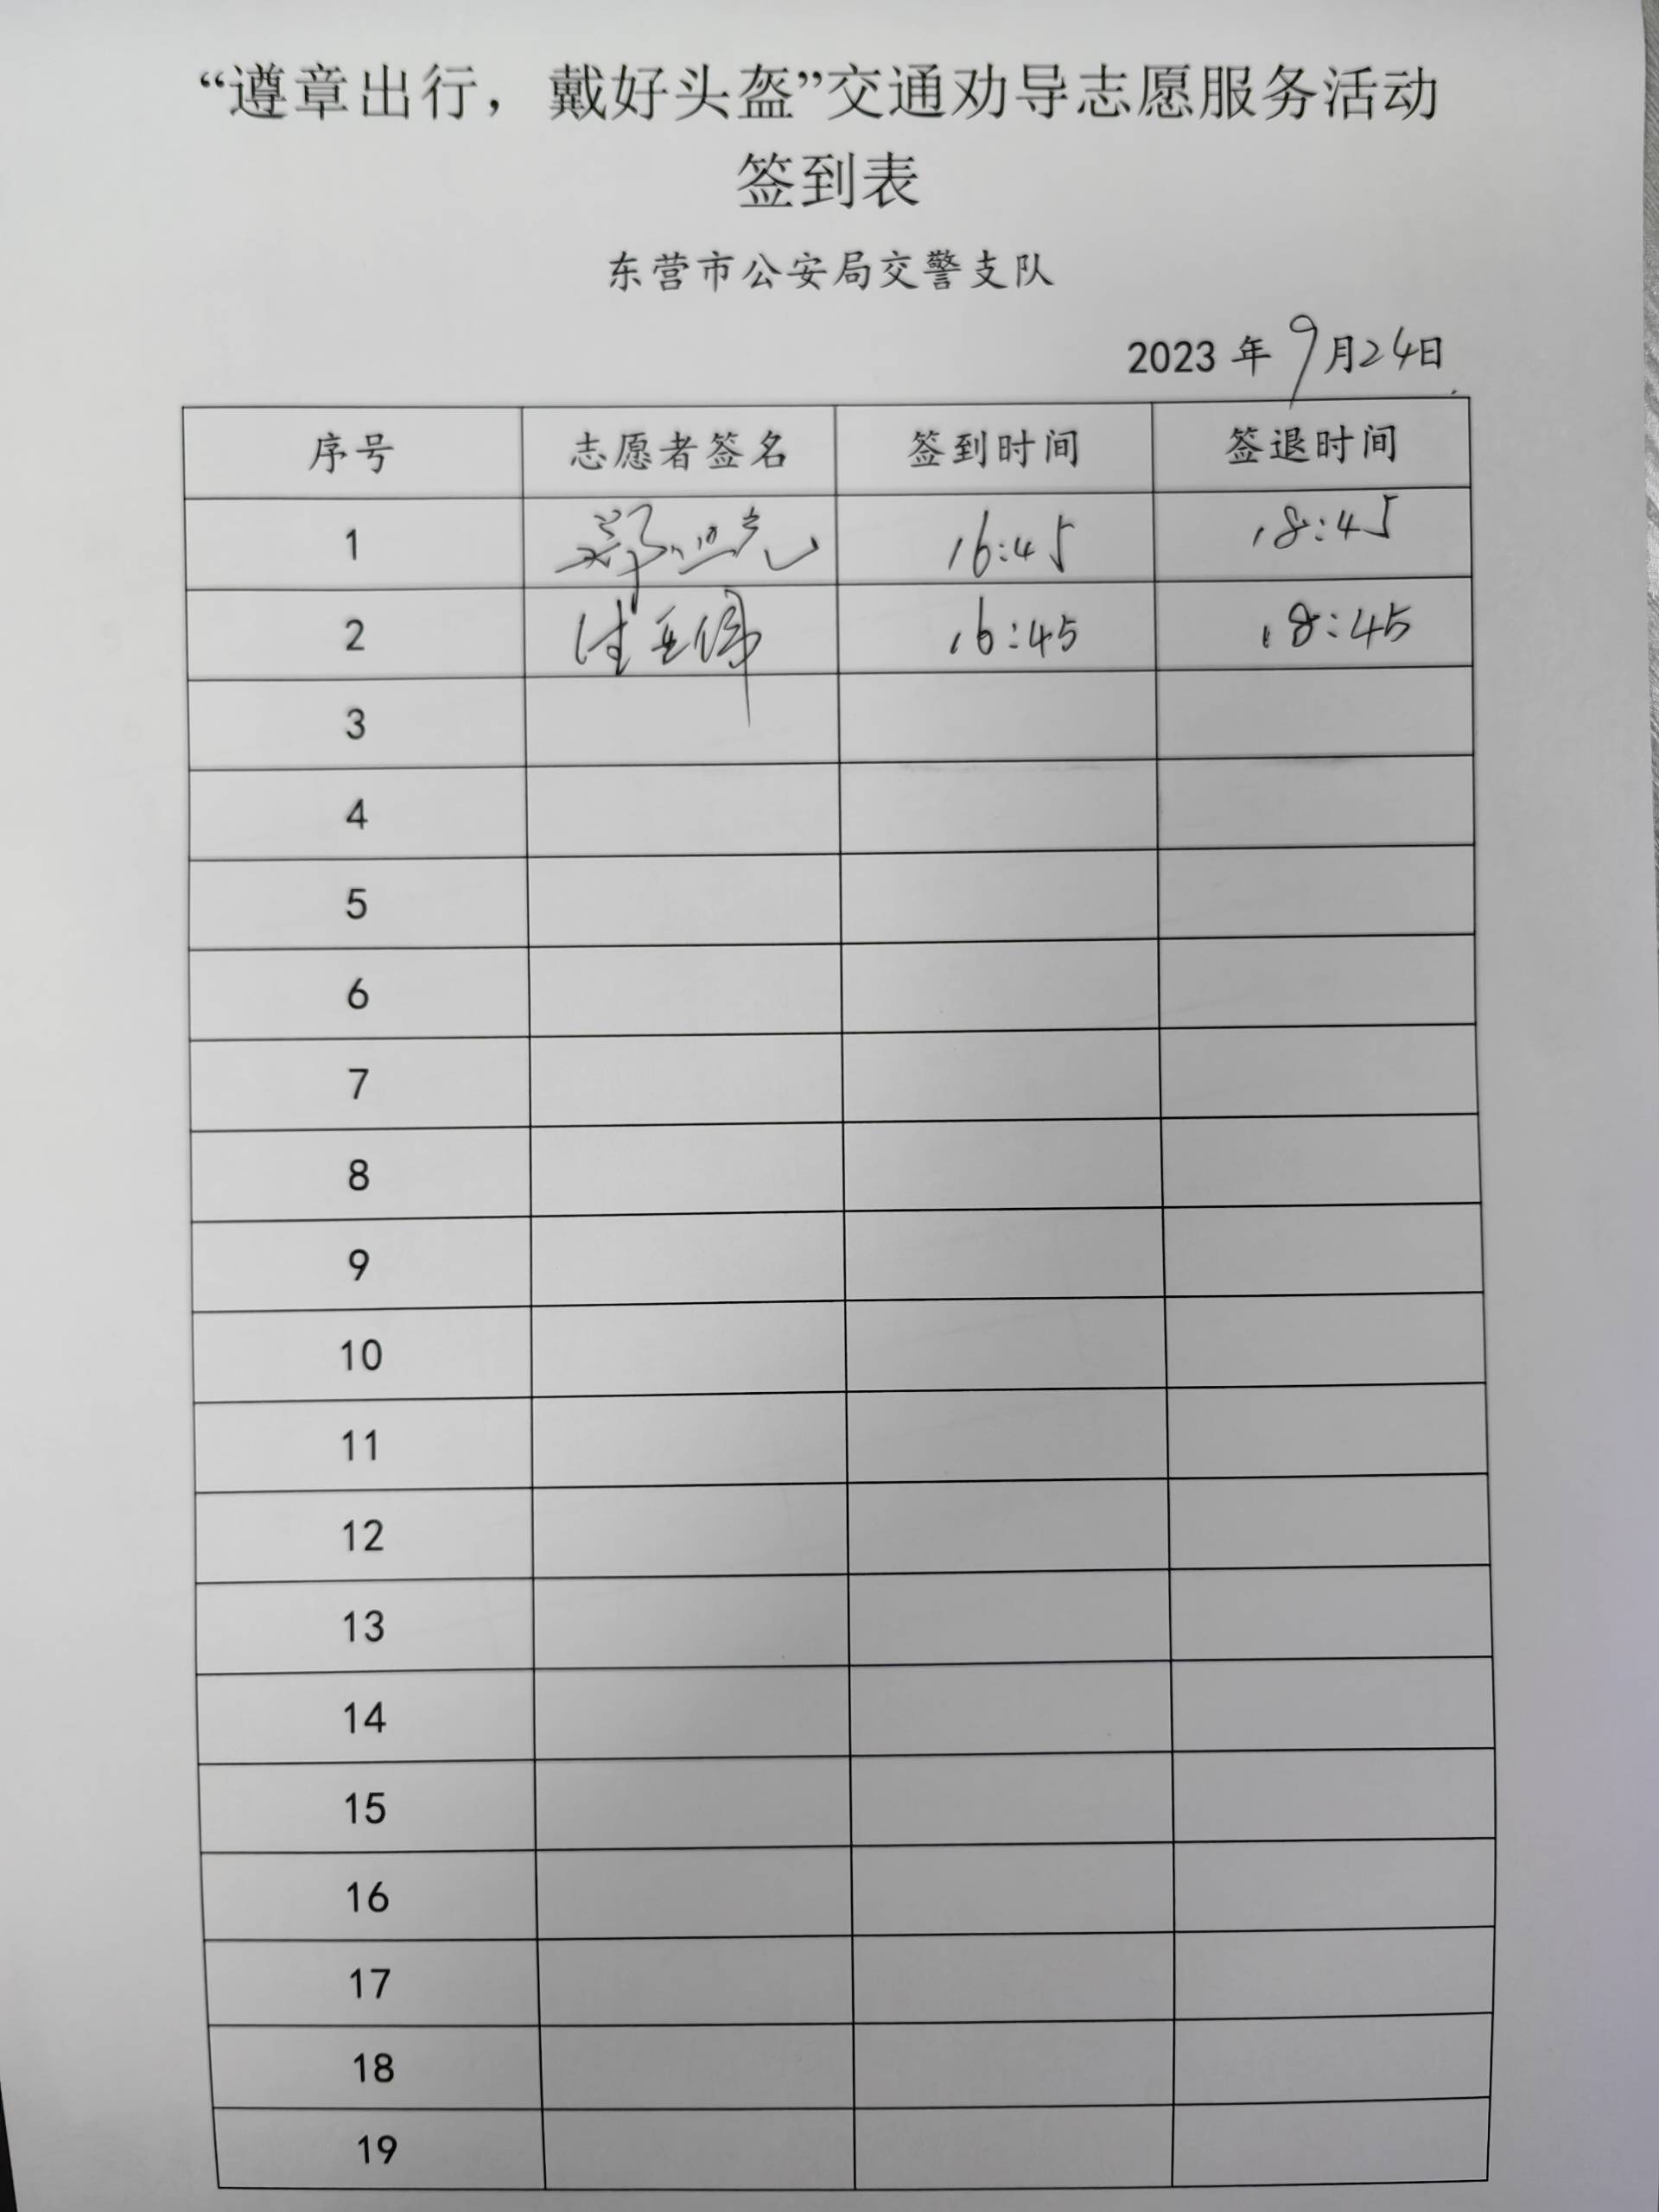 “遵章出行，戴好头盔”交通劝导志愿服务活动
签到表
东营市公安局交警支队
2023年9月24日
序号 志愿者签名 签到时间 签退时间
1 16:45 18:45
2 付亚伟 16:45 18:45
3
4
5
6
7
8
9
10
11
12
13
14
15
16
17
18
19